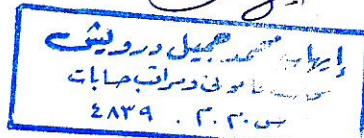 إيهاب محمد جميل درويش
قانونى ومراقب حسابات
س.م.م. ٤٨٣٩